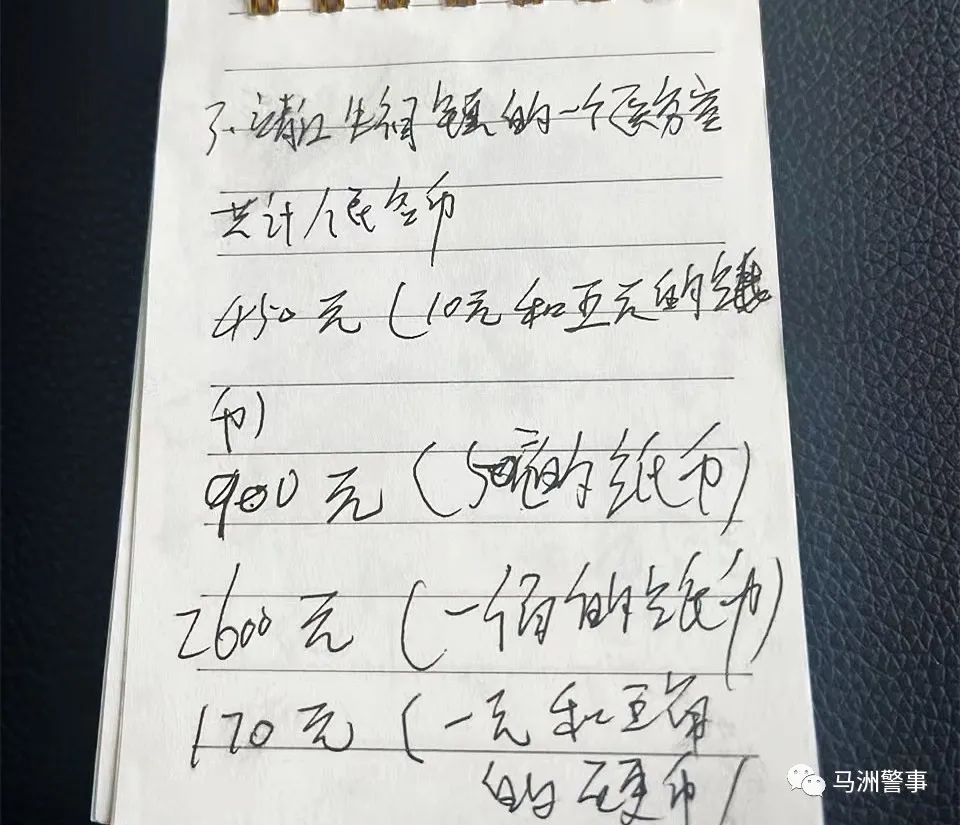 3.靖江生祠镇的一个医务室
共计人民币
450元(10元和五元的纸
币)
900元(50元的纸币)
2600元(一佰的纸币)
170元(一元和五角
的硬币)
马洲警事